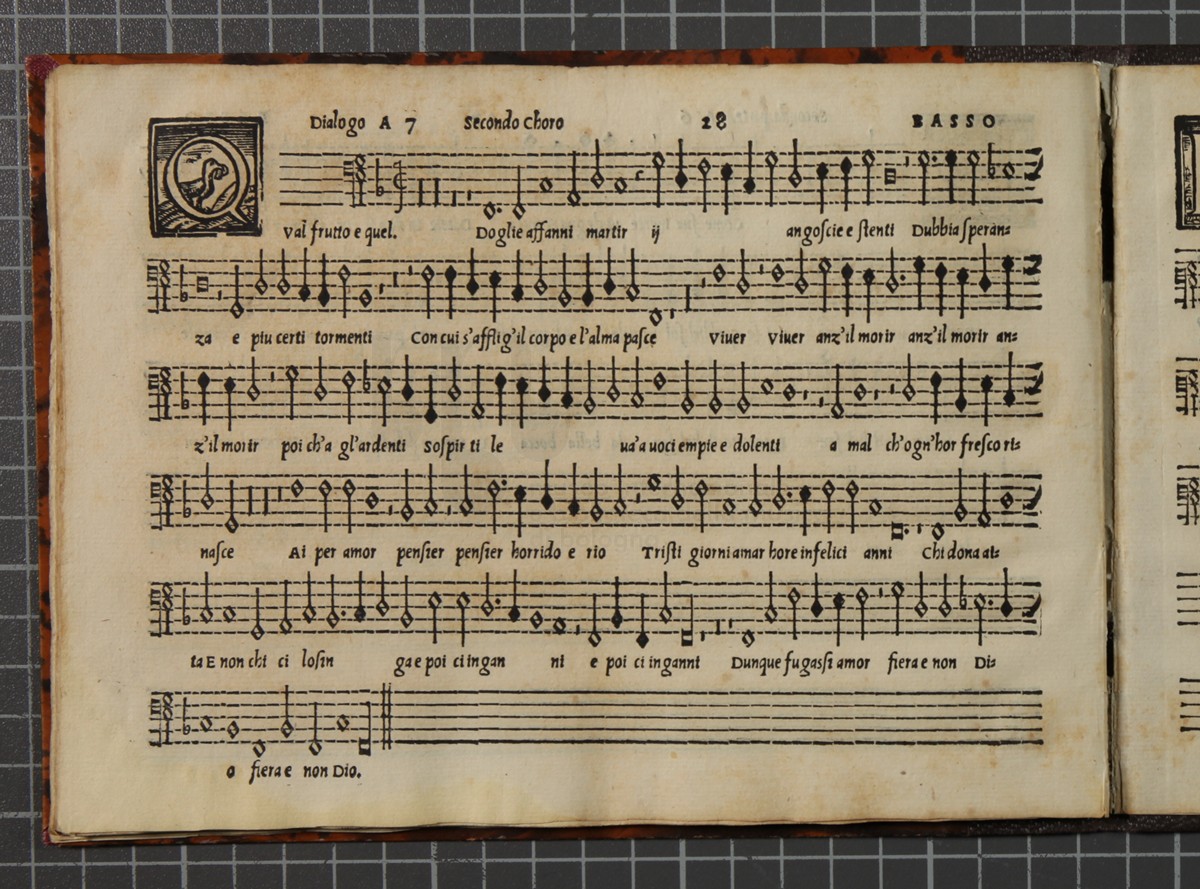 Dialogo A 7 Secondo Choro 28 BASSO
Q
val frutto e quel. Doglie affanni martir ij angoscie e stenti Dubbia speran=
za e piu certi tormenti Con cui s'afflig'il corpo e l'alma pasce Viuer Viuer anz'il morir anz'il morir an=
z'il morir poi ch'a gl'ardenti Sospir ti le ua'a uoci empie e dolenti a mal ch'ogn'hor fresco ri=
nasce Ai per amor pensier pensier horrido e rio Tristi giorni amar hore infelici anni Chi dona ai=
ta E non chi ci losin ga e poi ci ingan ni e poi ci inganni Dunque fu gassi amor fiera e non Di=
o fiera e non Dio.